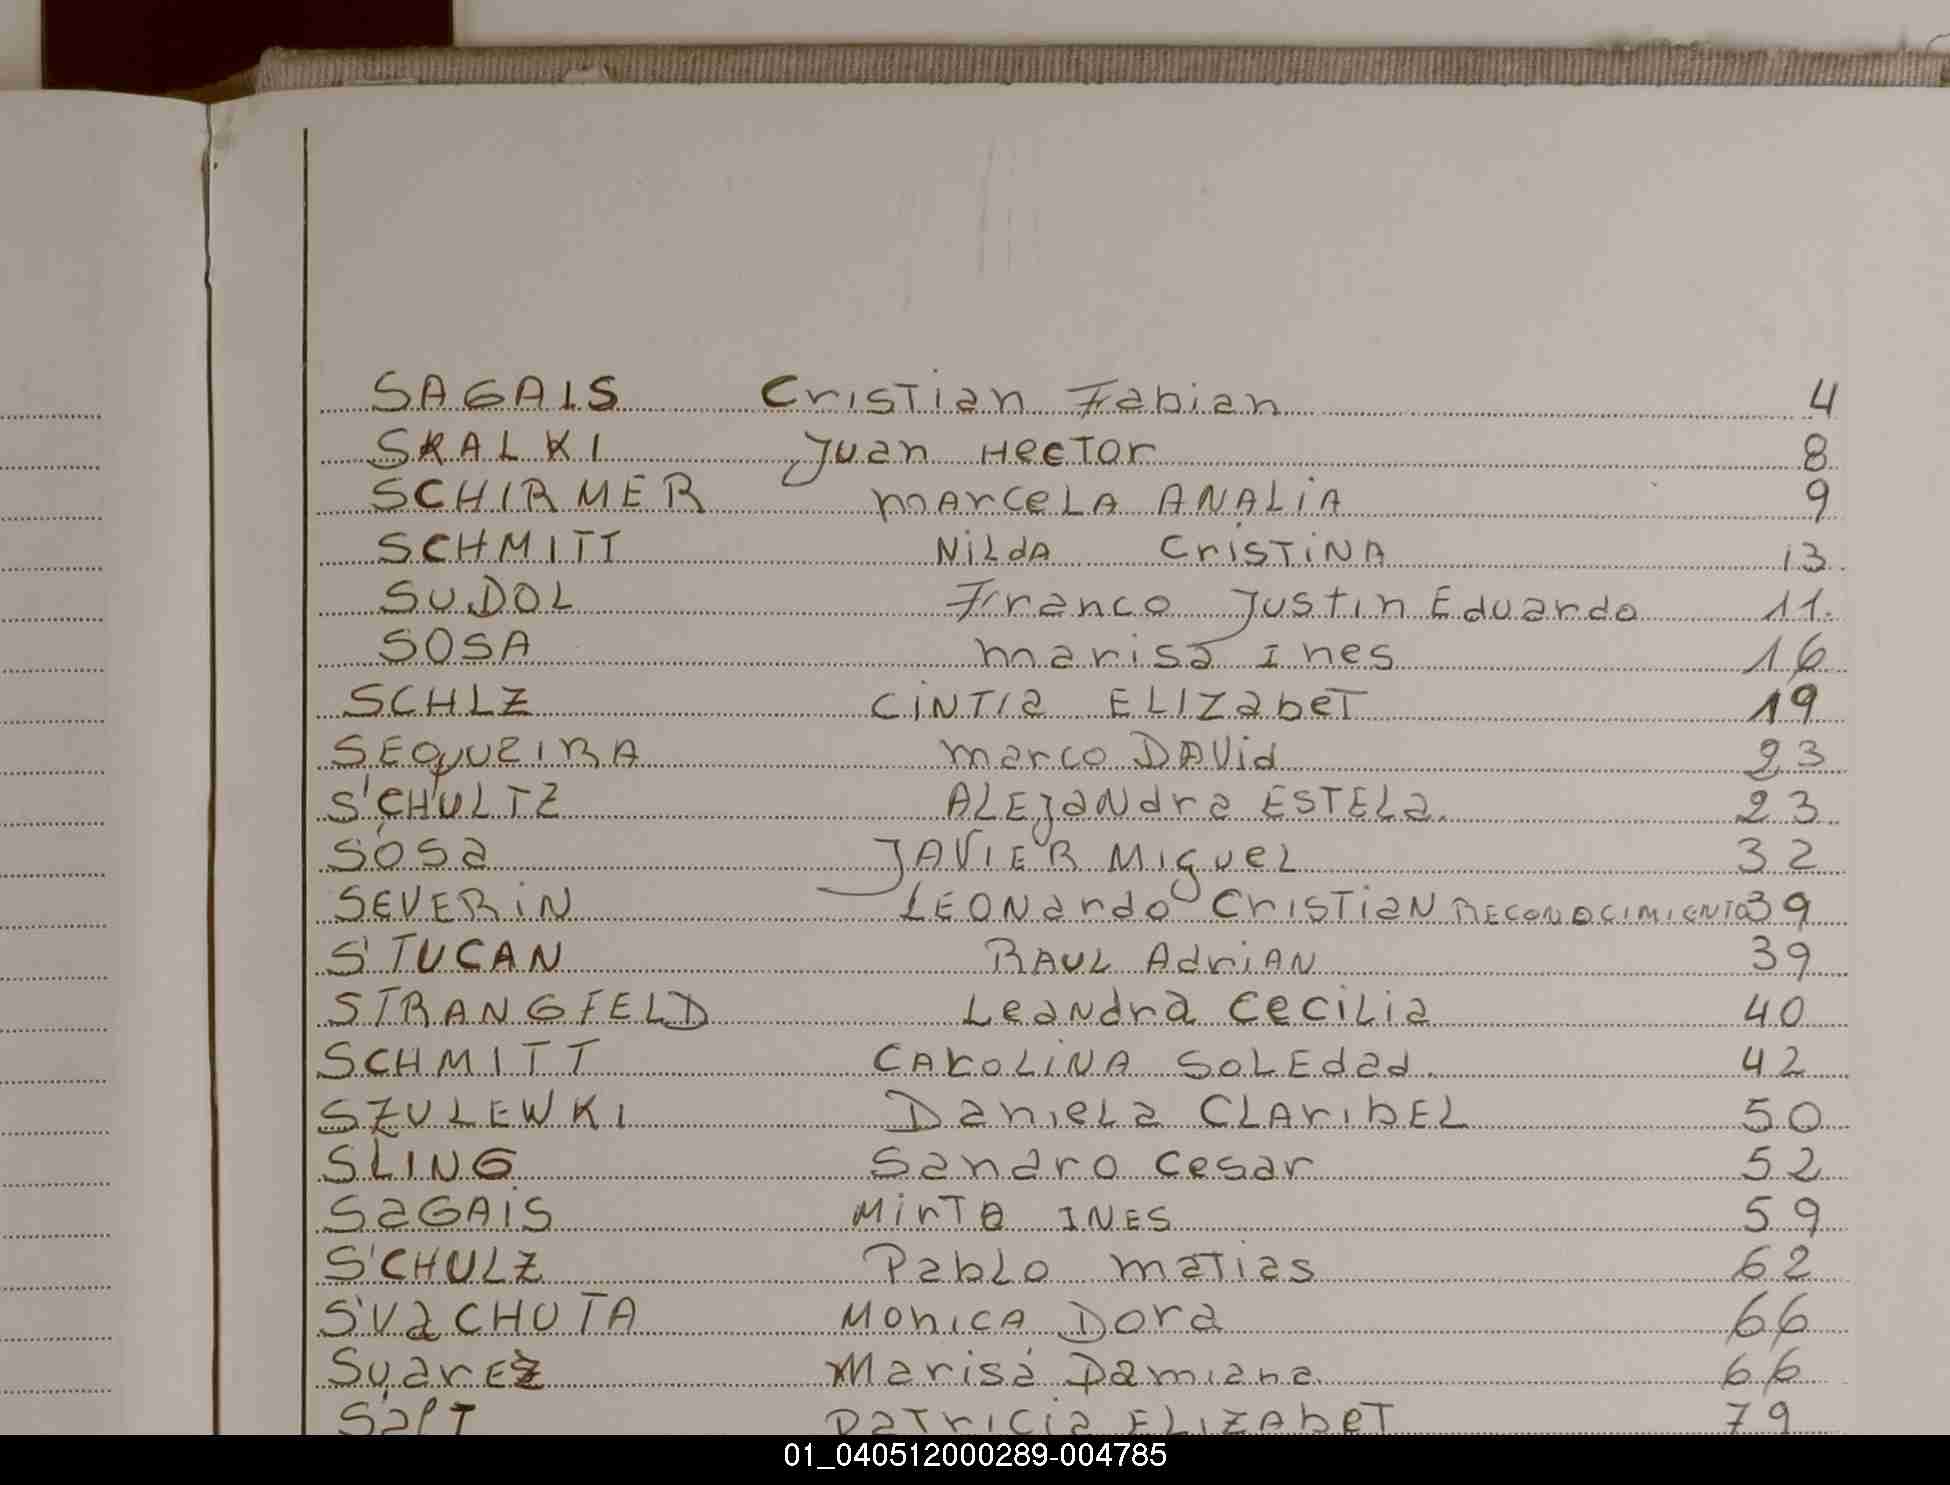 SAGAIS Cristian Fabian 4
SKALKI Juan Hector 8
SCHIRMER Marcela ANALiA 9
SCHMITT Nilda CrisTiNA 13
SUDOL Franco Justin Eduardo 11
SOSA Marisa Ines 16
SCHLZ CiNTia ELIZabeT 19
SEQUEIRA Marco DAVid 23
SCHULTZ ALEjaNdra ESTELa. 23
SOSa JAVIER MIGUEL 32
SEVERiN LEONardo CrisTiaN RECONOCIMIENTO 39
STUCAN RAUL AdriAN 39
STRANGFELD LeaNdra CeciLia 40
SCHMITT CAroLiNA SoLEdad. 42
SZULEWKI DanieLa CLAribEL 50
SLING Sandro Cesar 52
SaGAiS MirTa INES 59
SCHULZ PabLo MaTias 62
SVaCHUTA MoniCA Dora 66
SuarEZ Marisa Damiana 66
PaTriCia ELIZAbeT 79
01_040512000289-004785